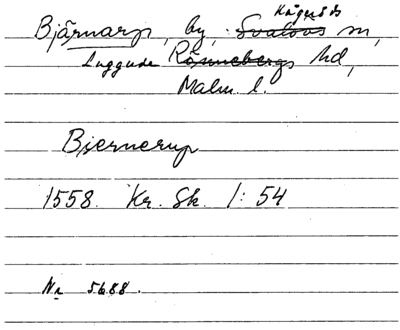 Kågeröds
Bjärnarp, by, Svalövs sn,
Luggude Rönnebergs hd,
Malm l.
Bjernerup
1558. Kr. Sk. 1: 54
Nr 5688.